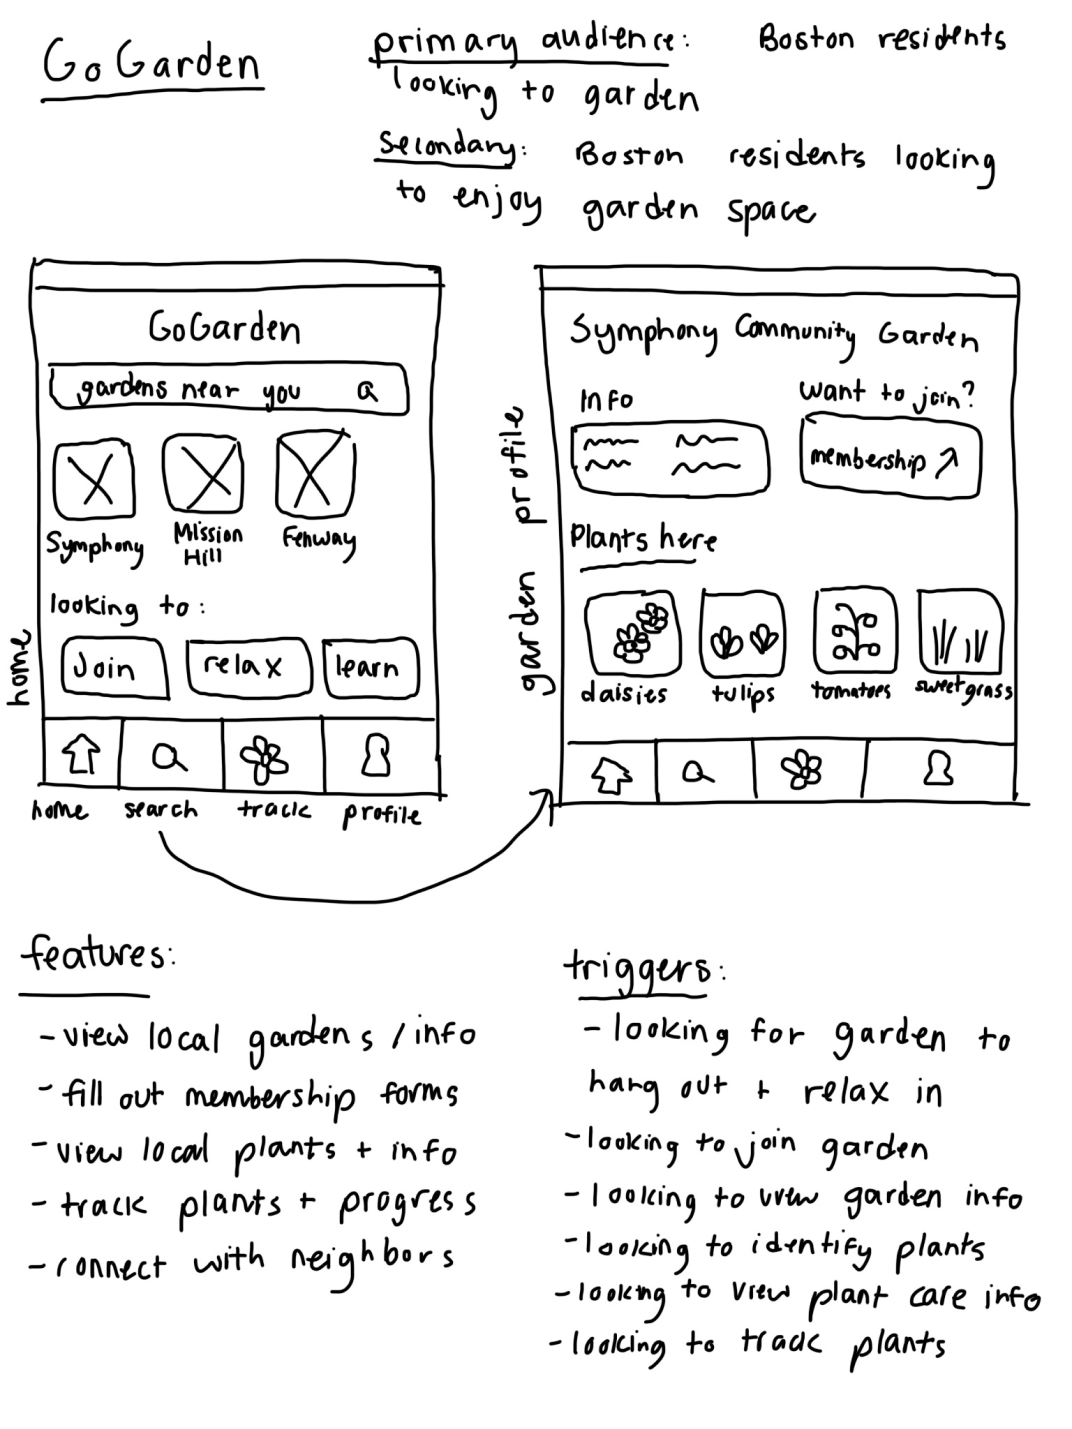 GoGarden
primary audience: Boston residents
looking to garden
Secondary: Boston residents looking
to enjoy garden space
home
GoGarden
gardens near you
Symphony
Mission
Hill
Fenway
looking to:
Join
relax
learn
home
search
track
profile
garden profile
Symphony Community Garden
Info
want to join?
membership ↗
Plants here
daisies
tulips
tomatoes
sweetgrass
features:
- view local gardens / info
- fill out membership forms
- view local plants + info
- track plants + progress
- connect with neighbors
triggers:
- looking for garden to
hang out + relax in
- looking to join garden
- looking to view garden info
- looking to identify plants
- looking to view plant care info
- looking to track plants